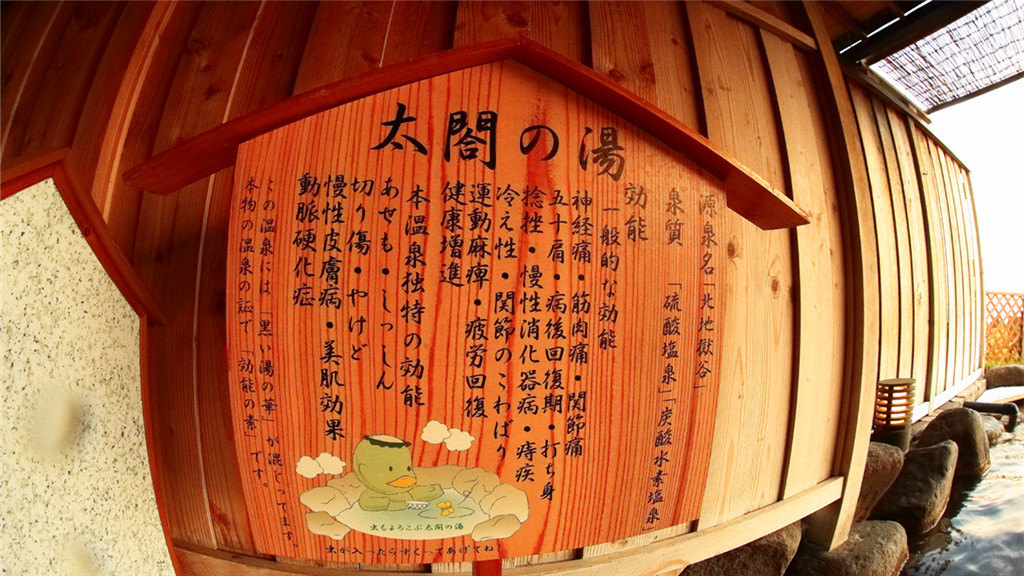 太閤の湯
源泉名「北地獄谷」
泉質 「硫酸塩泉」「炭酸水素塩泉」
効能
一般的な効能
神経痛・筋肉痛・関節痛
五十肩・病後回復期・打ち身
捻挫・慢性消化器病・痔疾
冷え性・関節のこわばり
運動麻痺・疲労回復
健康増進
本温泉独特の効能
あせも・しっしん
切り傷・やけど
慢性皮膚病・美肌効果
動脈硬化症
この温泉には「黒い湯の華」が混じってます。
本物の温泉の証で「効能の素」です。
虫もよろこぶ太閤の湯
虫が入ったらすくってあげてね